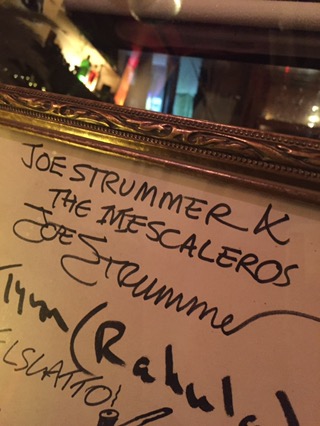 JOE STRUMMER &
THE MESCALEROS
Joe Strummer
Tym (Rahula)